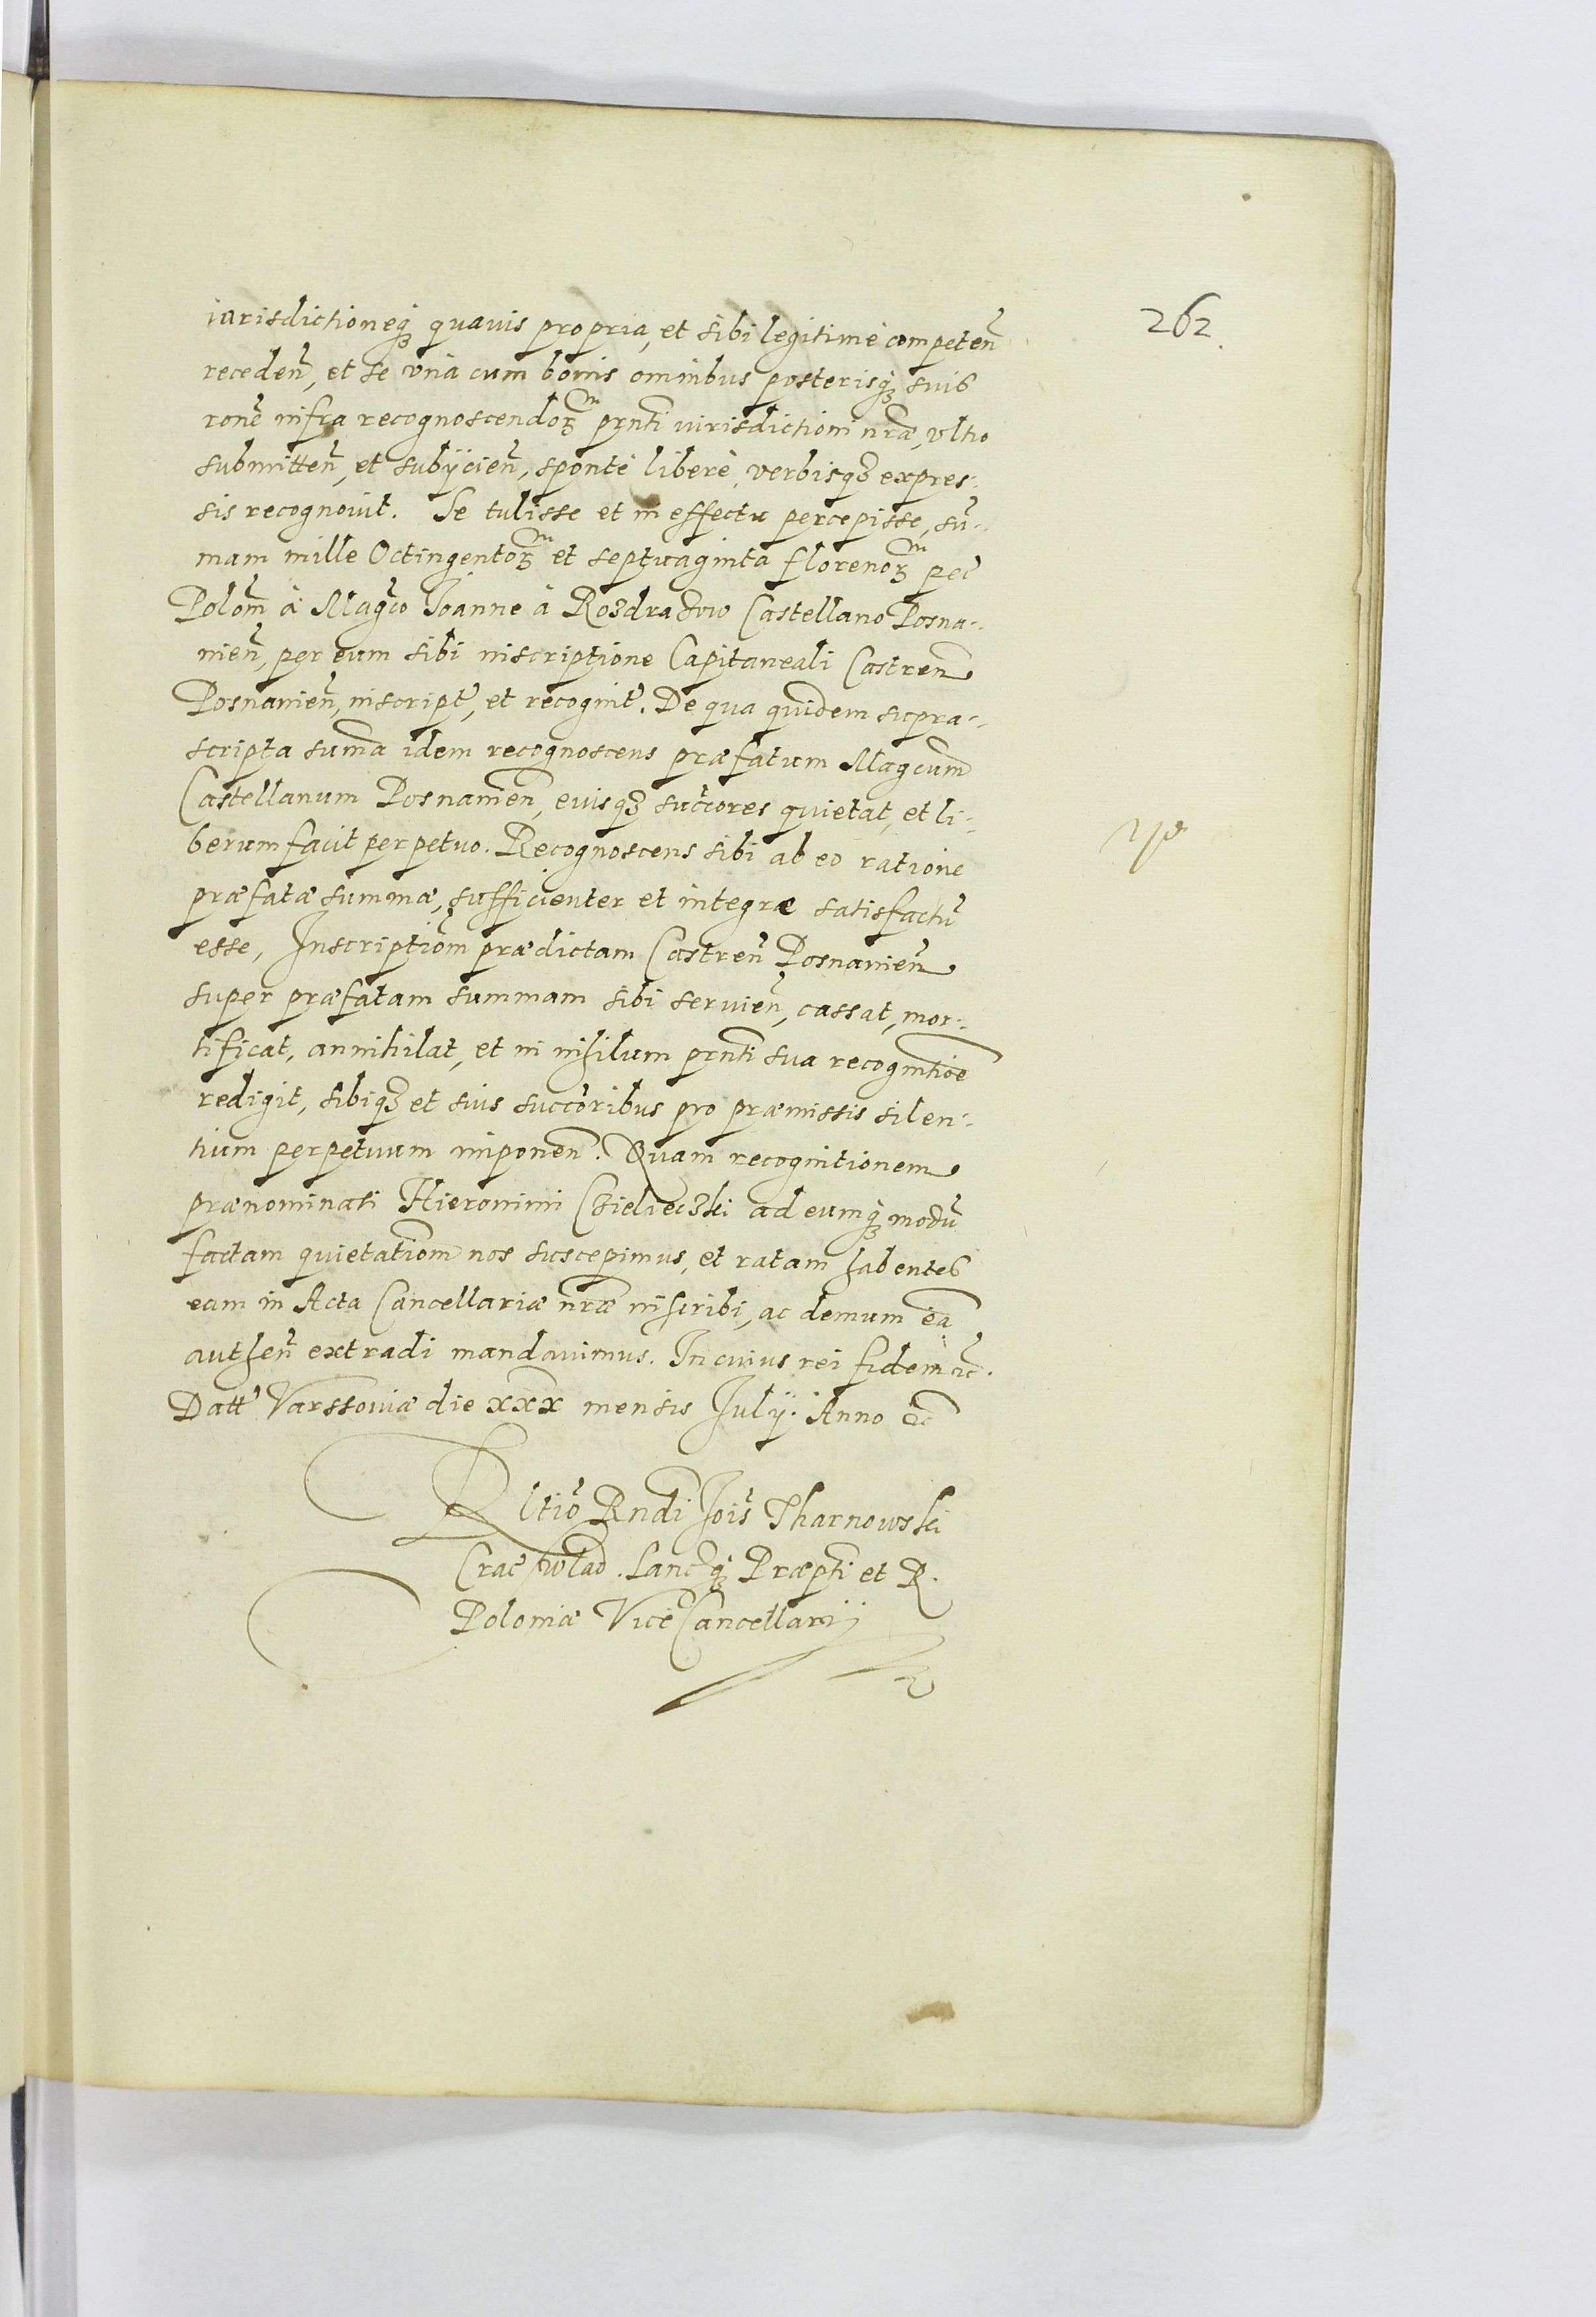 262.
iurisdictioneq3 quauis propria, et sibi legitimè competeñ
recedeñ, et se vnà cum bonis omnibus posterisq3 suis
roñe infra recognoscendoꝝ pñti iurisdictioni nr̃æ, vltro
submitteñ, et subijcieñ, spontè liberè, verbisq3 expres-
sis recognouit. Se tulisse et in effectu percepisse, sũ-
mam mille Octingentoꝝ et septuaginta florenoꝝ pec̃
Poloñ à Mag̃co Ioanne à Rozdrazow Castellano Posna-
nieñ, per eum sibi inscriptione Capitaneali Castreñ
Posnanieñ, inscript̃, et recognit̃. De qua quidem supra-
scripta sum̃a idem recognoscens præfatum Magcum̃
Castellanum Posnanieñ, eiusq3 succ̃ores quietat, et li-
berum facit perpetuo. Recognoscens sibi ab eo ratione
præfatæ summæ, sufficienter et integræ satisfactũ
esse, Inscriptiom̃ prædictam Castreñ Posnanieñ
super præfatam summam sibi seruieñ, cassat, mor-
tificat, annihilat, et in nihilum pñti sua recognitioe
redigit, sibiq3 et suis succ̃oribus pro præmissis silen-
tium perpetuum imponeñ. Quam recognitionem
prænominati Hieronimi Czielieczki ad eumq3 modũ
factam quietatiom̃ nos suscepimus, et ratam habentes
eam in Acta Cancellariæ nr̃æ inscribi, ac demum eã
autheñ extradi mandauimus. In cuius rei fidem ꝛc̃.
Datt̃ Varssouiæ die xxx mensis Iulij. Anno ꝛc̃
Rltio Rndi Iois̃ Tharnowski
Crac̃ Wlad. Lanc̃q3 Præpti et R.
Poloniæ Vice Cancellarij